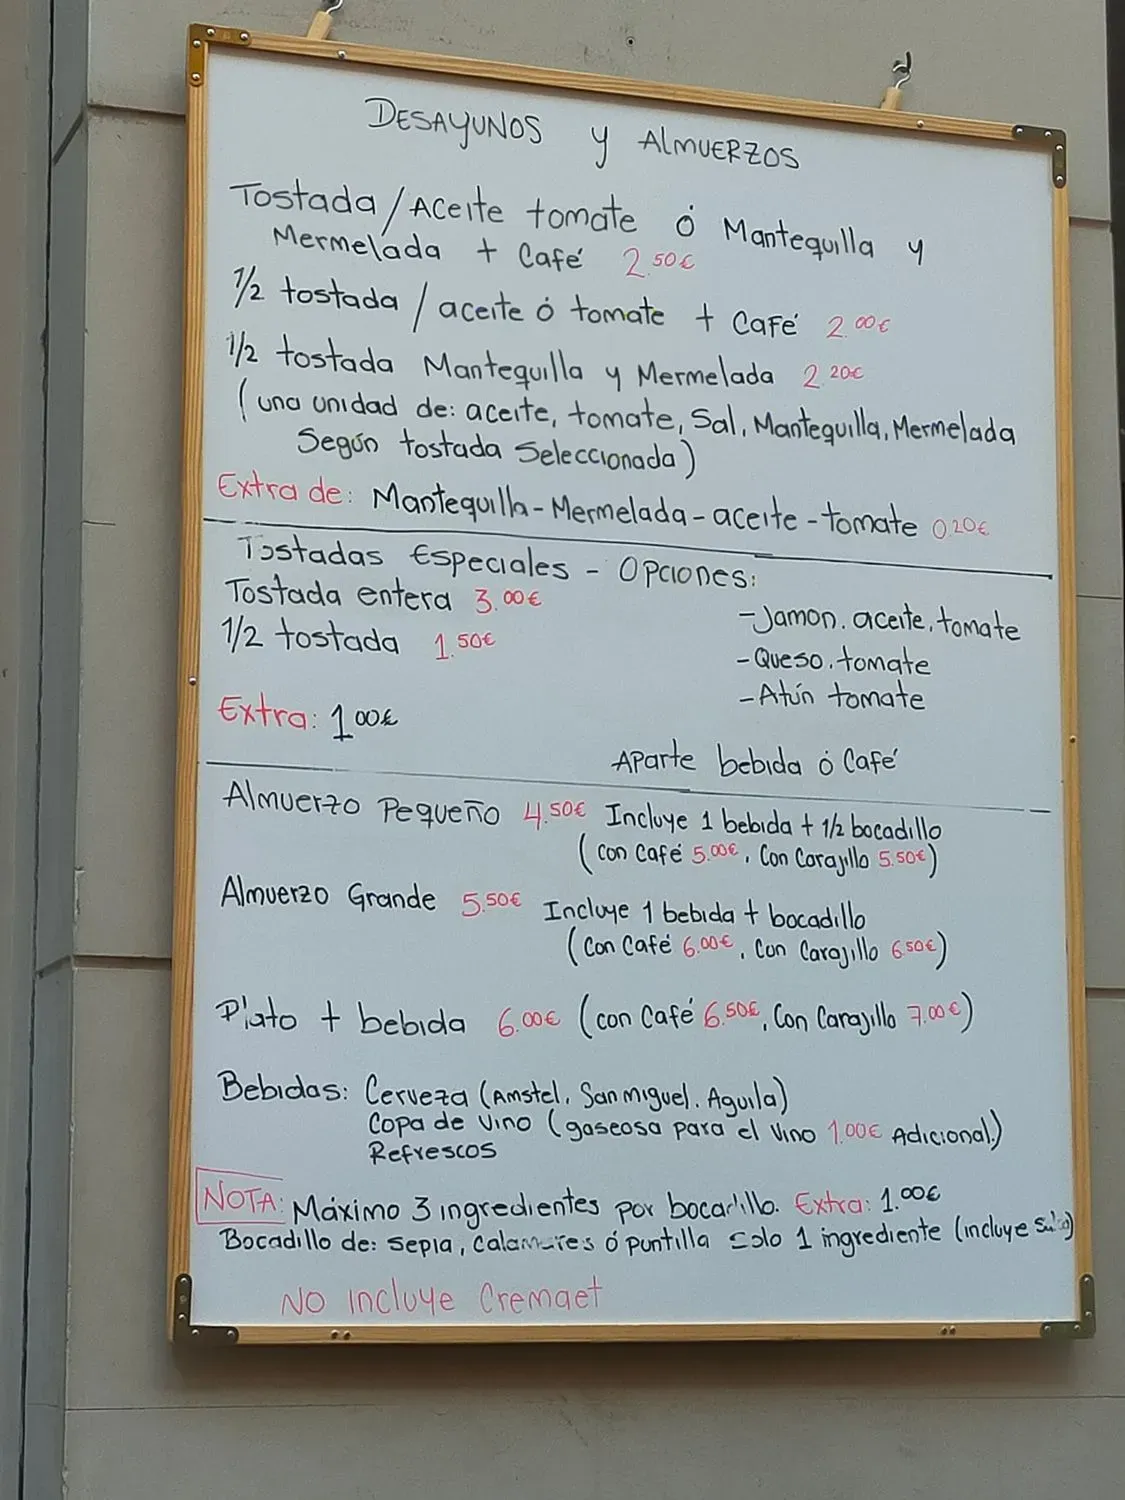 DESAYUNOS y ALMUERZOS
Tostada / Aceite tomate ó Mantequilla y
Mermelada + Café 2.50€
1/2 tostada / aceite ó tomate + Café 2.00€
1/2 tostada Mantequilla y Mermelada 2.20€
(una unidad de: aceite, tomate, Sal, Mantequilla, Mermelada
Según tostada Seleccionada)
Extra de: Mantequilla - Mermelada - aceite - tomate 0.20€
Tostadas Especiales - Opciones:
Tostada entera 3.00€
1/2 tostada 1.50€
- Jamon. aceite. tomate
- Queso. tomate
- Atún tomate
Extra: 1.00€
Aparte bebida ó Café
Almuerzo Pequeño 4.50€ Incluye 1 bebida + 1/2 bocadillo
(con Café 5.00€, Con Carajillo 5.50€)
Almuerzo Grande 5.50€ Incluye 1 bebida + bocadillo
(Con Café 6.00€, Con Carajillo 6.50€)
Plato + bebida 6.00€ (con Café 6.50€, Con Carajillo 7.00€)
Bebidas: Cerveza (Amstel, San miguel. Aguila)
Copa de vino (gaseosa para el vino 1.00€ Adicional.)
Refrescos
NOTA: Máximo 3 ingredientes por bocadillo. Extra: 1.00€
Bocadillo de: sepia, calamares ó puntilla solo 1 ingrediente (incluye
NO incluye Cremaet